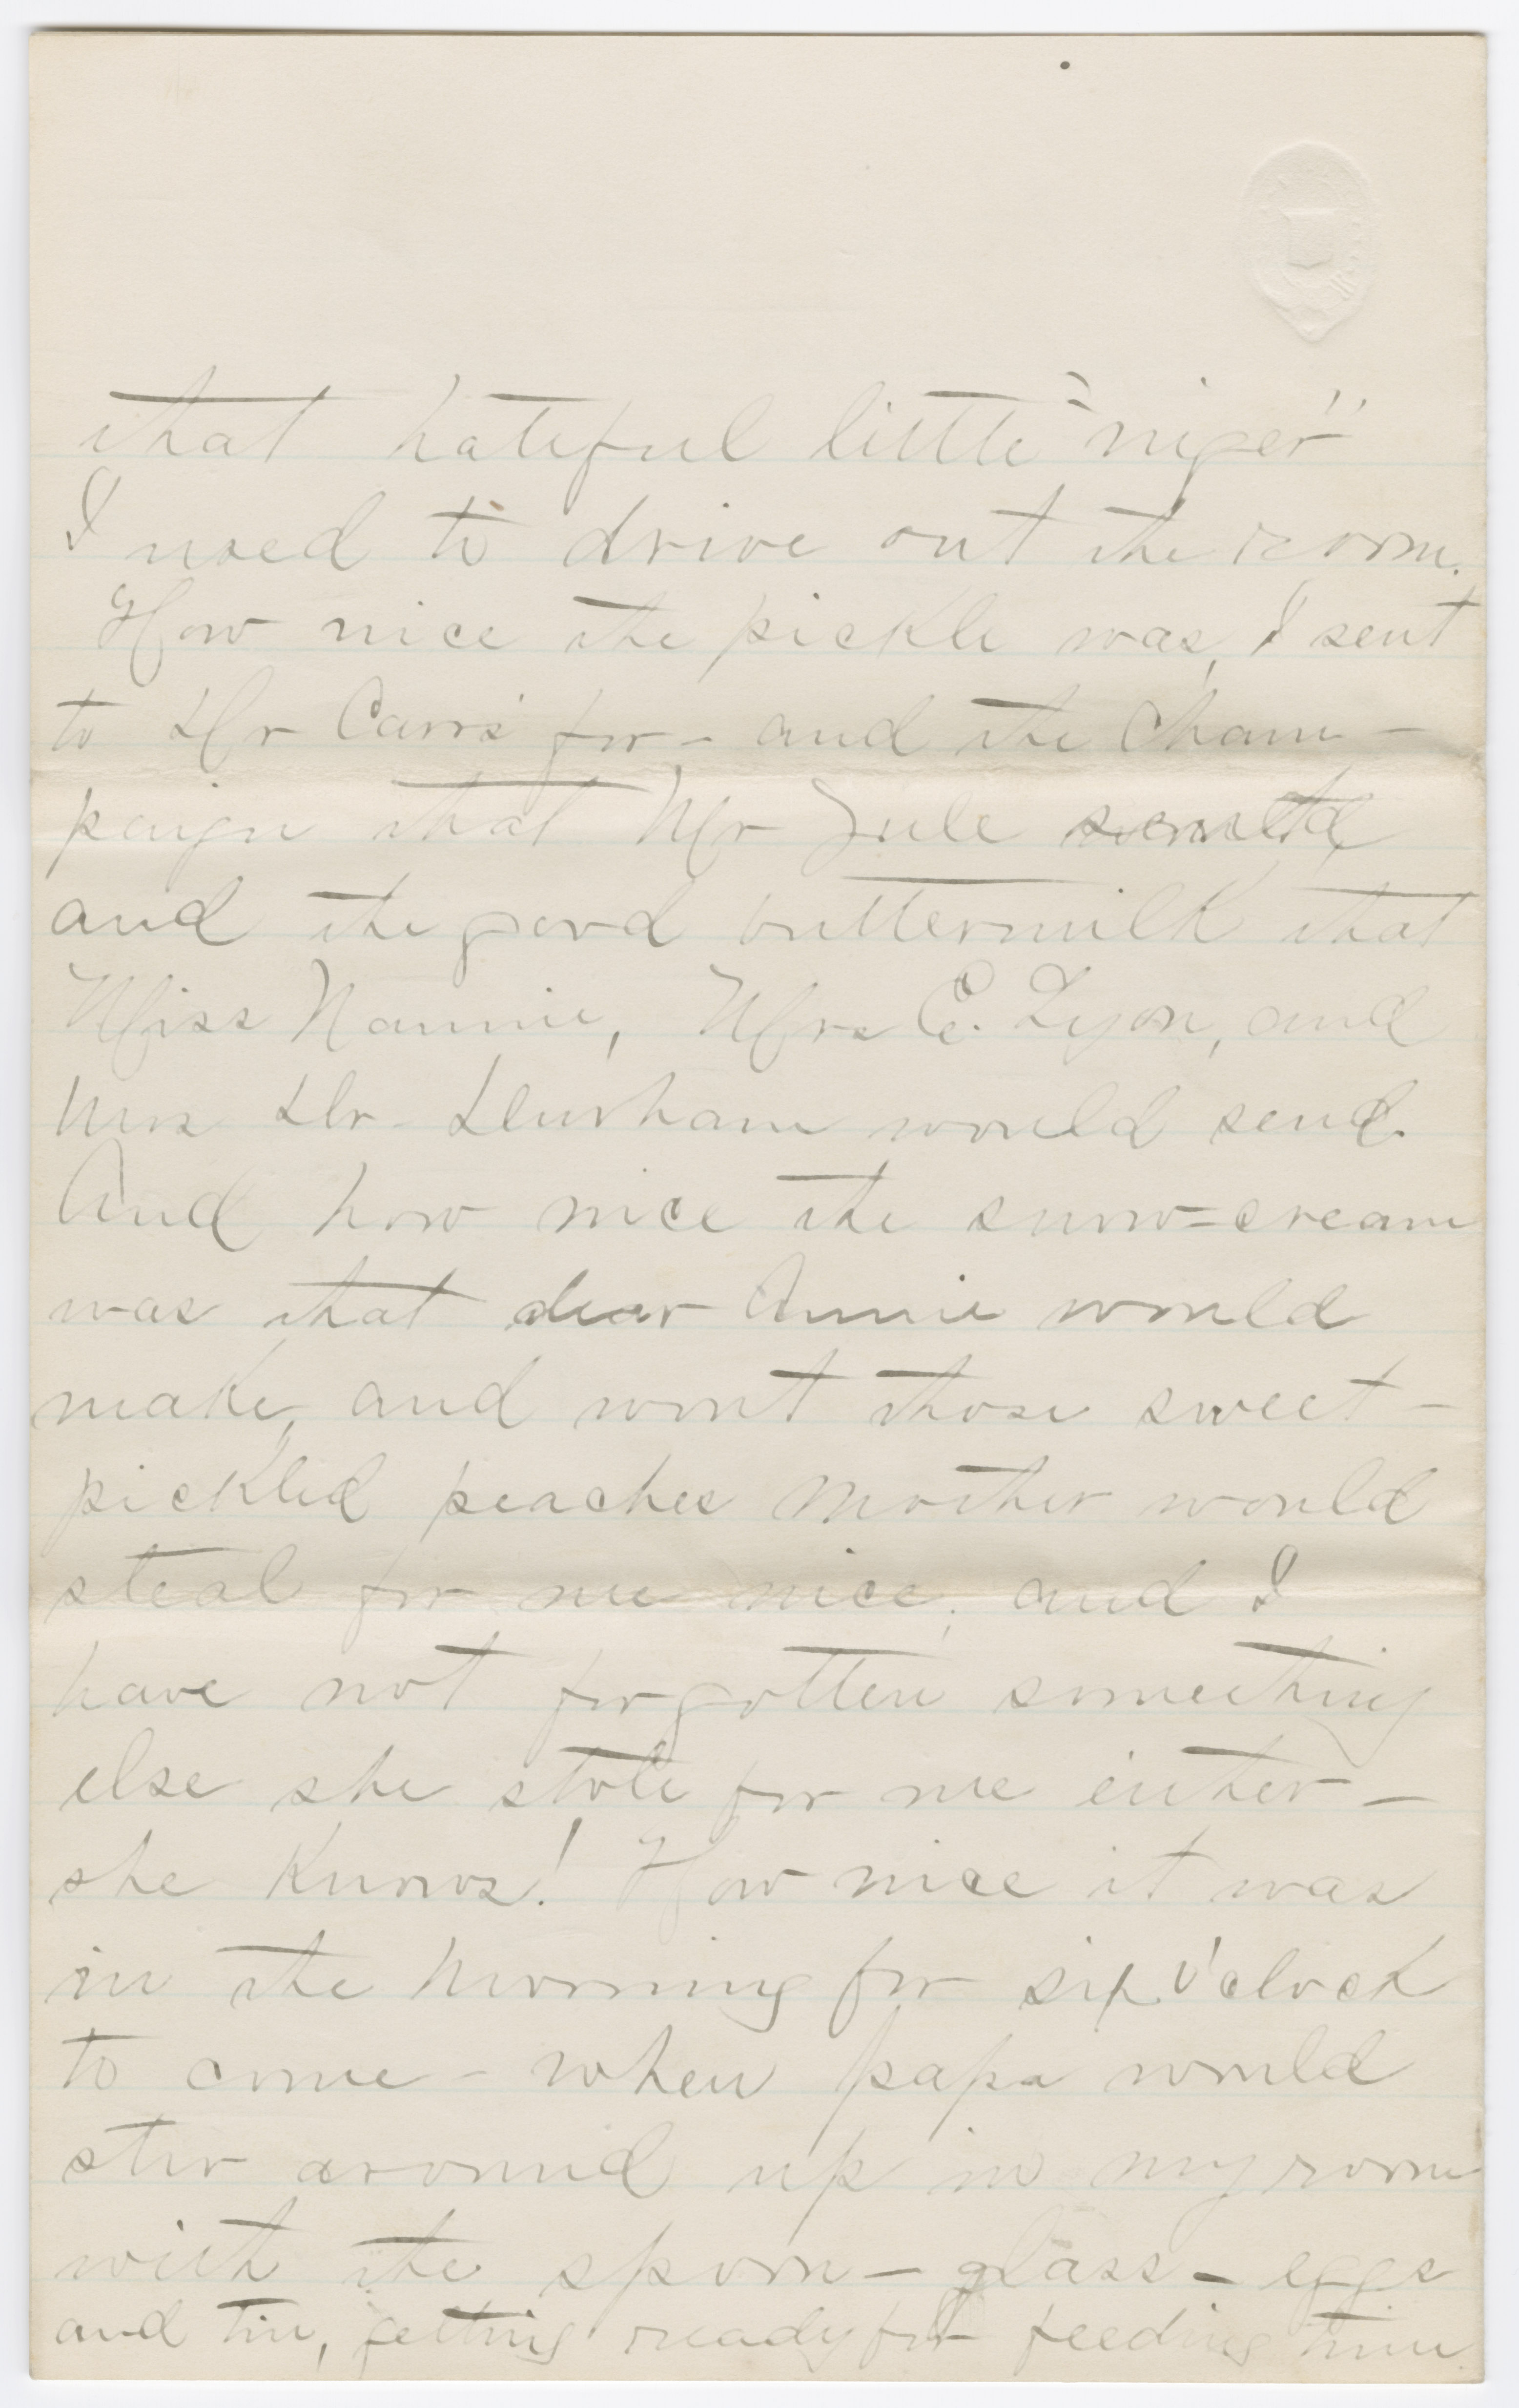 that hateful little "niger"
I used to drive out the room.
How nice the pickle was, I sent
to Dr Carrs for - and the Cham-
paign that Mr Jule
and the good buttermilk that
Miss Nannie, Mrs C. Lyon, and
Mrs Dr. Durham would send.
And how nice the snow=cream
was that dear Annie would
make, and wont those sweet-
pickled peaches Mother would
steal for me nice, and I
have not forgotten something
else she stole for me either -
she knows! How nice it was
in the morning for six o'clock
to come - when papa would
stir around up in my room
with the spoon - glass - eggs
and tin, getting ready for feeding time.